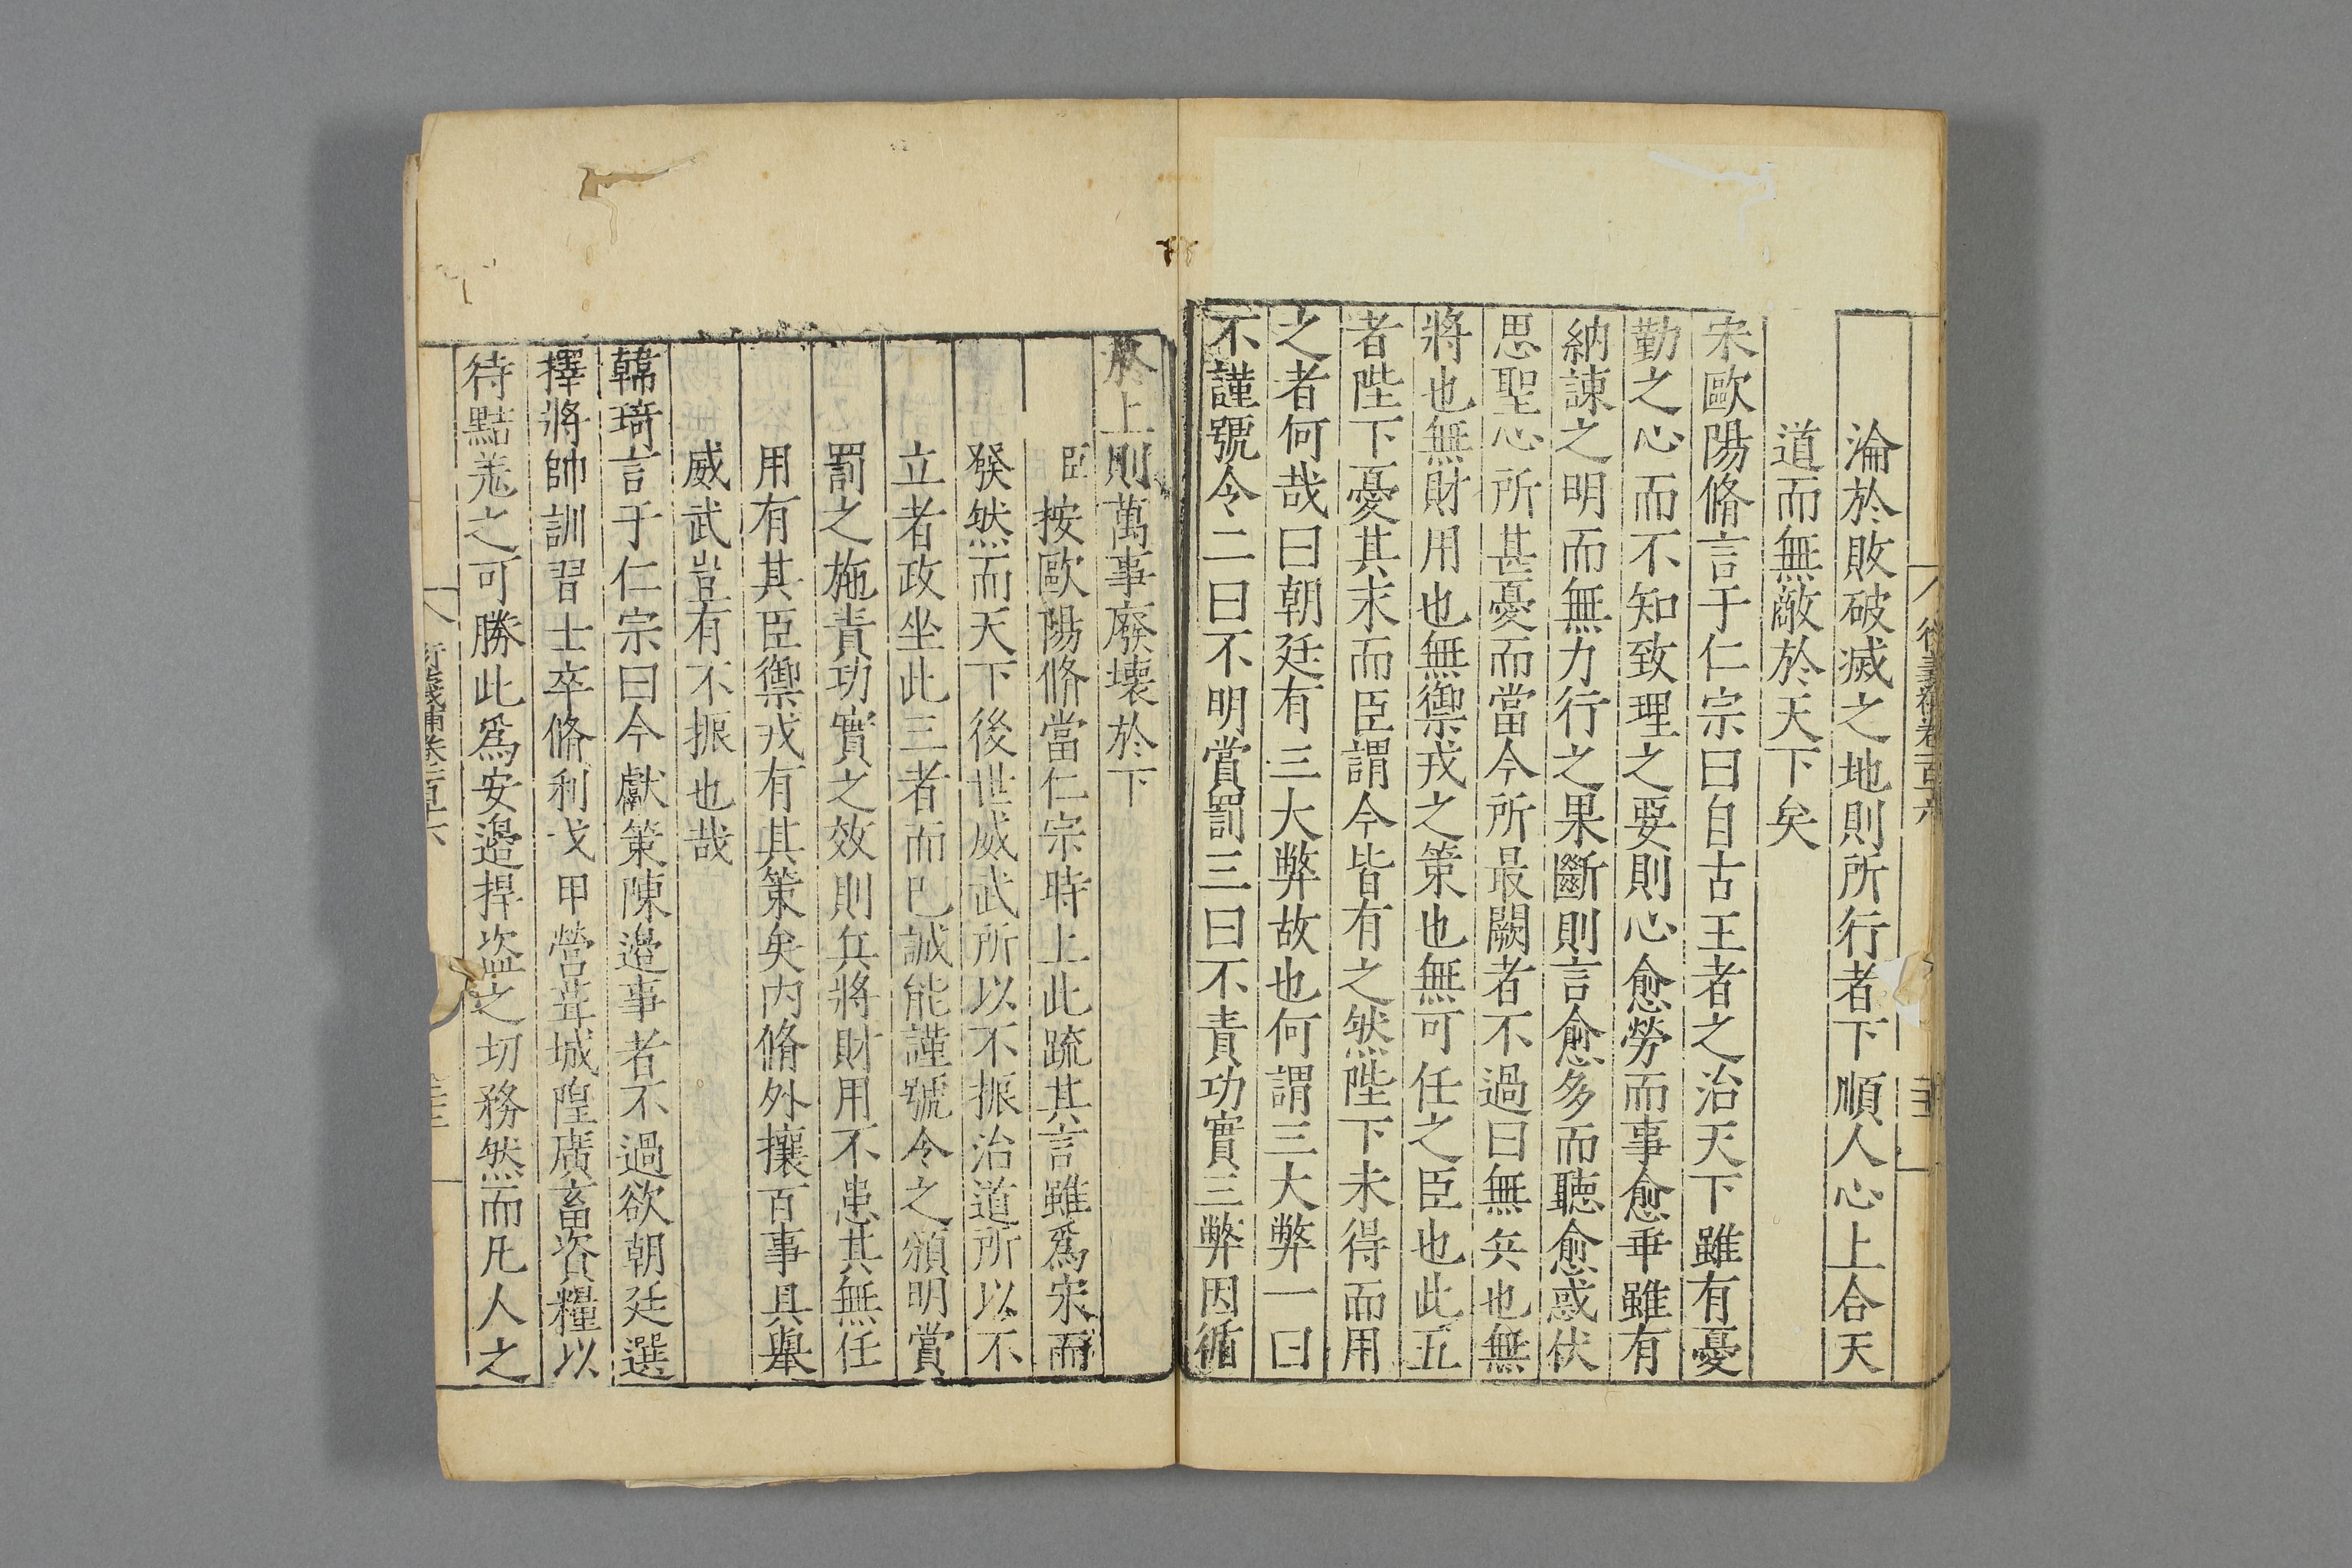 淪於敗破滅之地則所行者下順人心上合天
道而無敵於天下矣
宋歐陽脩言于仁宗曰自古王者之治天下雖有憂
勤之心而不知致理之要則心愈勞而事愈乖雖有
納諫之明而無力行之果斷則言愈多而聽愈惑伏
思聖心所甚憂而當今所最闕者不過曰無兵也無
將也無財用也無禦戎之策也無可任之臣也此五
者陛下憂其未而臣謂今皆有之然陛下未得而用
之者何哉曰朝廷有三大弊故也何謂三大弊一曰
不謹號令二曰不明賞罰三曰不責功實三弊因循
於上則萬事廢壞於下
臣按歐陽脩當仁宗時上此疏其言雖爲宋而
發然而天下後世威武所以不振治道所以不
立者政坐此三者而已誠能謹號令之頒明賞
罰之施責功實之效則兵將財用不患其無任
用有其臣禦戎有其策矣內脩外攘百事具舉
威武豈有不振也哉
韓琦言于仁宗曰今獻策陳邊事者不過欲朝廷選
擇將帥訓習士卒脩利戈甲營葺城隍廣畜資糧以
待黠羌之可勝此爲安邊捍盜之切務然而凡人之